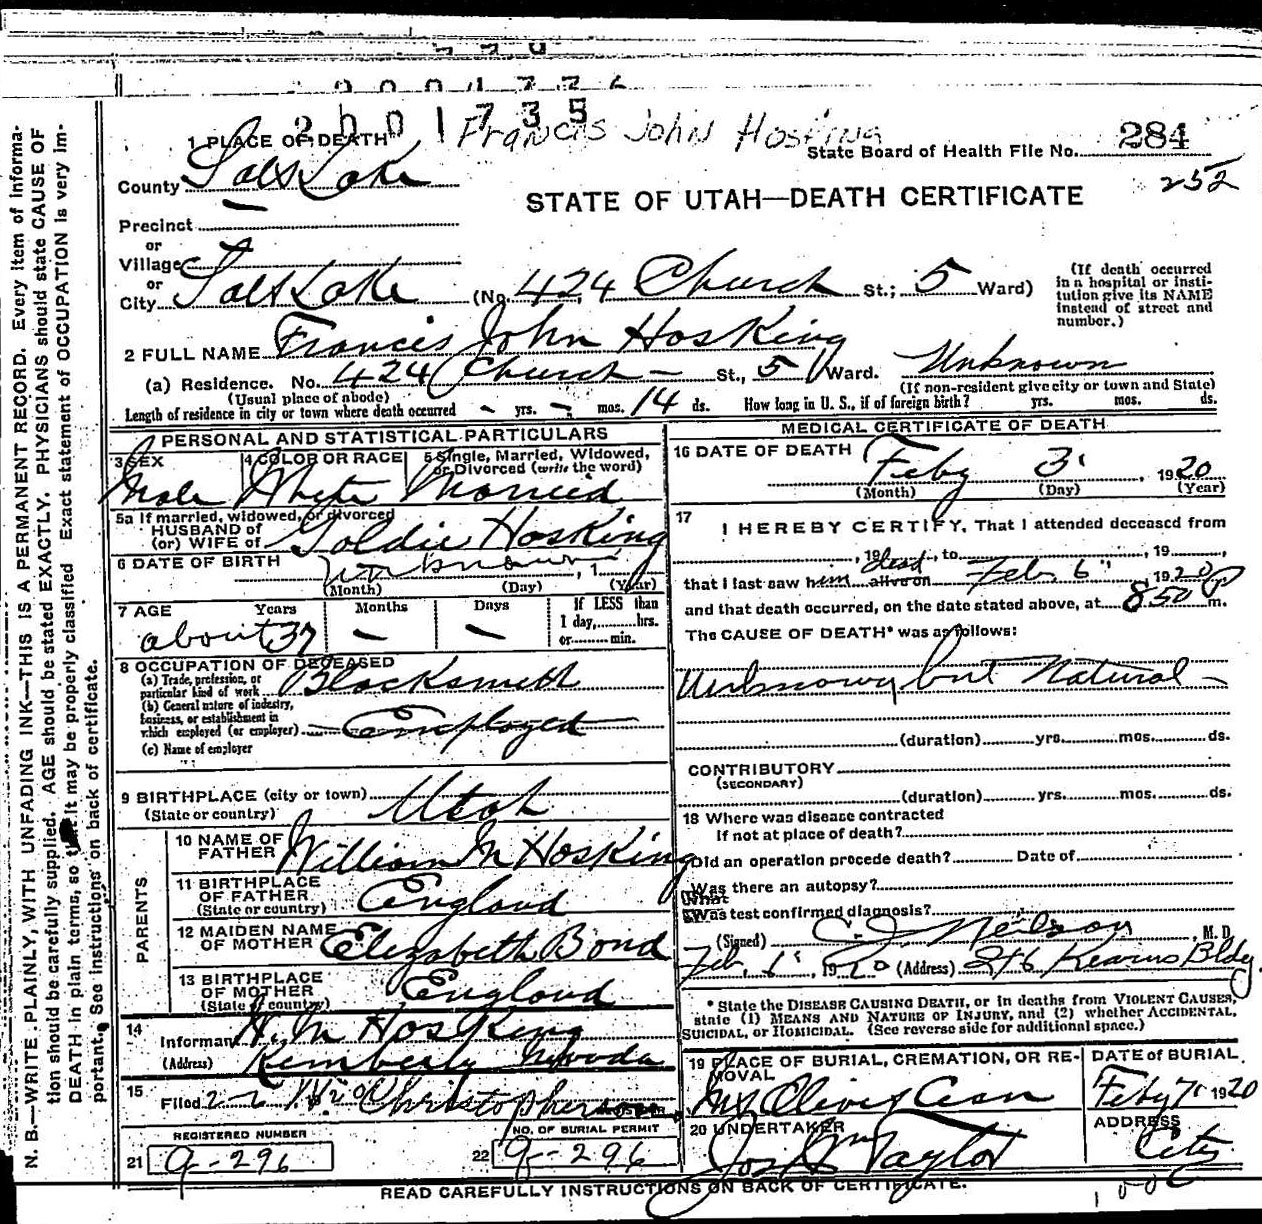 2001735
Francis John Hosking
1 PLACE OF DEATH
State Board of Health File No. 284
252
County Salt Lake
STATE OF UTAH—DEATH CERTIFICATE
Precinct
or
Village
or
City Salt Lake (No. 424 Church St.; 5 Ward)
(If death occurred in a hospital or institution give its NAME instead of street and number.)
2 FULL NAME Francis John Hosking
(a) Residence. No. 424 Church — St., 5 Ward. Unknown
(Usual place of abode) (If non-resident give city or town and State)
Length of residence in city or town where death occurred - yrs. - mos. 14 ds. How long in U. S., if of foreign birth? yrs. mos. ds.
PERSONAL AND STATISTICAL PARTICULARS
3 SEX 4 COLOR OR RACE 5 Single, Married, Widowed,
or Divorced (write the word)
Male White Married
5a If married, widowed, or divorced
HUSBAND of
(or) WIFE of Goldie Hosking
6 DATE OF BIRTH unknown, 1
(Month) (Day) (Year)
7 AGE Years Months Days If LESS than
1 day,........hrs.
or........min.
about 37 — —
8 OCCUPATION OF DECEASED
(a) Trade, profession, or
particular kind of work Blacksmith
(b) General nature of industry,
business, or establishment in
which employed (or employer) Employed
(c) Name of employer
9 BIRTHPLACE (city or town)
(State or country) Utah
PARENTS
10 NAME OF
FATHER William M Hosking
11 BIRTHPLACE
OF FATHER
(State or country) England
12 MAIDEN NAME
OF MOTHER Elizabeth Bond
13 BIRTHPLACE
OF MOTHER
(State or country) England
14
Informant H. M Hosking
(Address) Kimberly Nevada
15
Filed 2- Christopherson
REGISTERED NUMBER NO. OF BURIAL PERMIT
21 9-296 22 9-296
MEDICAL CERTIFICATE OF DEATH
16 DATE OF DEATH Feby 3, 1920
(Month) (Day) (Year)
17
I HEREBY CERTIFY, That I attended deceased from
, 19 , to , 19 ,
that I last saw him alive on dead Feb. 6 1920
and that death occurred, on the date stated above, at 8 50 P m.
The CAUSE OF DEATH* was as follows:
Unknown but Natural -
(duration) yrs. mos. ds.
CONTRIBUTORY
(SECONDARY)
(duration) yrs. mos. ds.
18 Where was disease contracted
If not at place of death?
Did an operation procede death? Date of
Was there an autopsy?
What
Was test confirmed diagnosis?
(Signed) Neilson, M. D.
Feb, 6 1920 (Address) Kearns Bldg
* State the DISEASE CAUSING DEATH, or in deaths from VIOLENT CAUSES,
state (1) MEANS AND NATURE OF INJURY, and (2) whether ACCIDENTAL,
SUICIDAL, or HOMICIDAL. (See reverse side for additional space.)
19 PLACE OF BURIAL, CREMATION, OR REMOVAL
DATE of BURIAL
Mt Olivet Cem Feby 7 1920
20 UNDERTAKER ADDRESS
Jos Wm Taylor City
READ CAREFULLY INSTRUCTIONS ON BACK OF CERTIFICATE.
N. B.—WRITE PLAINLY, WITH UNFADING INK—THIS IS A PERMANENT RECORD. Every item of information should be carefully supplied. AGE should be stated EXACTLY. PHYSICIANS should state CAUSE OF DEATH in plain terms, so that it may be properly classified. Exact statement of OCCUPATION is very important. See instructions on back of certificate.